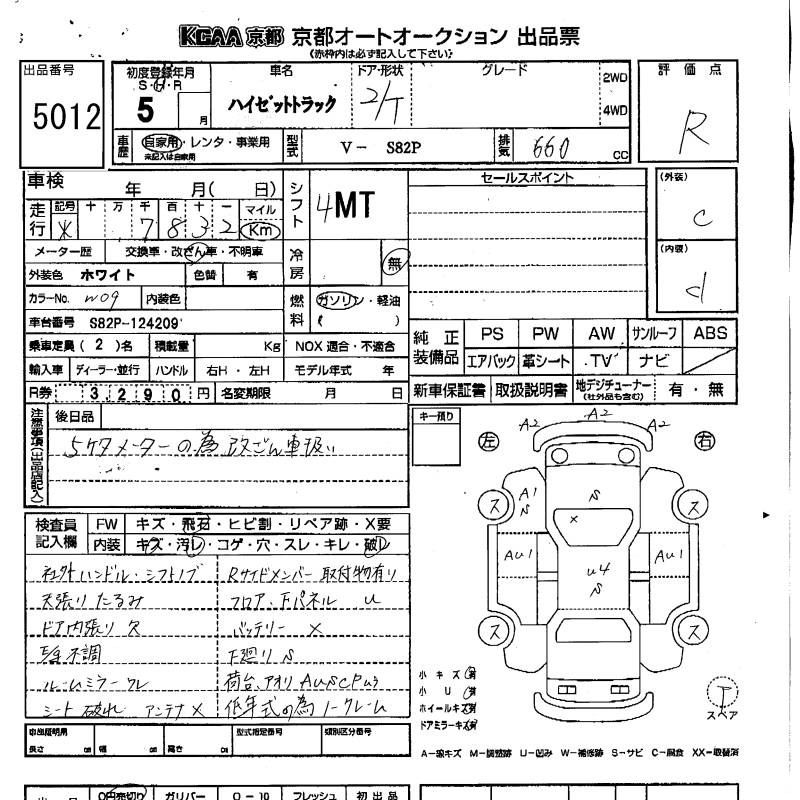 KCAA 京都 京都オートオークション 出品票
(赤枠内は必ず記入して下さい)
出品番号
5012
初度登録年月
S・H・R
5 月
車名
ハイゼットトラック
ドア・形状
2/T
グレード
2WD
4WD
評価点
R
車歴
自家用・レンタ・事業用
未記入は自家用
型式
V - S82P
排気
660 cc
車検 年 月( 日)
走行
記号 十 万 千 百 十 一 マイル
※ 7 8 3 2 Km
メーター歴 交換車・改ざん車・不明車
外装色 ホワイト 色替 有
カラーNo. W09 内装色
車台番号 S82P-124209
乗車定員 ( 2 ) 名 積載量 Kg
輸入車 ディーラー・並行 ハンドル 右H・左H
R券 3,290円 名変期限 月 日
シフト
4MT
冷房
無
燃料
ガソリン・軽油
( )
NOX 適合・不適合
モデル年式 年
セールスポイント
(外装)
C
(内装)
d
純正装備品
PS PW AW サンルーフ ABS
エアバック 革シート TV ナビ
新車保証書 取扱説明書 地デジチューナー 有・無
(社外品も含む)
注意事項(出品店記入)
後日品
5ケタメーターの為 改ざん車扱い
キー預り
左
右
A2 A2 A2
A1
S
S
×
AU1
AU1
U4
S
ス
ス
ス
ス
検査員記入欄
FW キズ・飛石・ヒビ割・リペア跡・X要
内装 キズ・汚レ・コゲ・穴・スレ・キレ・破レ
社外ハンドル・シフトノブ
Rサイドメンバー取付物有り
天張りたるみ
フロア、下パネル U
ドア内張り欠
バッテリー ×
不調
下廻り S
ルームミラーワレ
荷台、アオリ AUSCP
シート破れ アンテナ×
低年式の為ノークレーム
小キズ 有
小U 有
ホイールキズ 有
ドアミラーキズ 有
T
スペア
長さ cm 幅 cm 高さ cm
型式指定番号
類別区分番号
A-線キズ M-調整跡 U-凹み W-補修跡 S-サビ C-腐食 XX-取替済
0円売切り ガリバー 0-10 フレッシュ 初出品